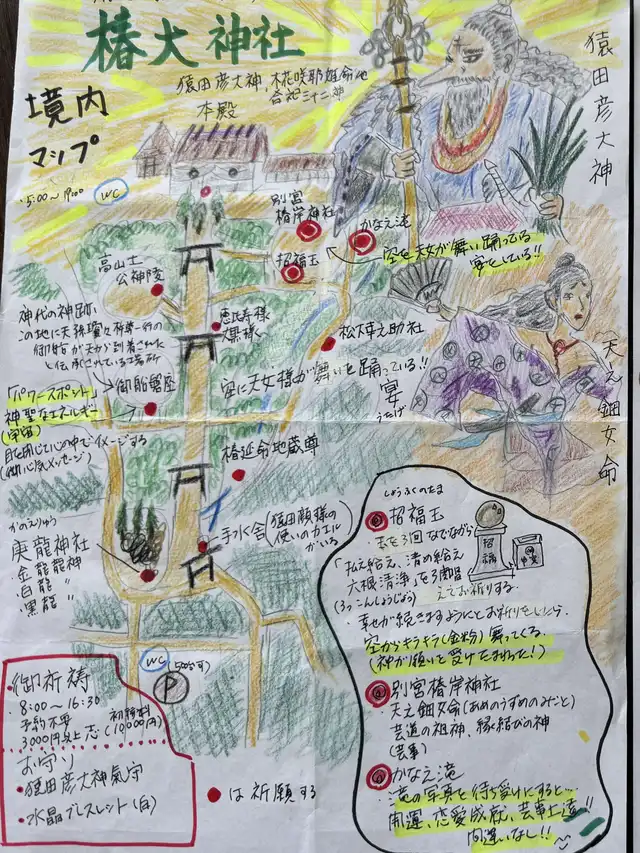 椿大神社
猿田彦大神 木花咲耶姫命他
合祀三十二神
本殿
境内
マップ
・5:00〜19:00
WC
猿田彦大神
別宮
椿岸神社
かなえ滝
招福玉
空を天女が舞い踊っている
宴をしている!!
高山土
公神陵
恵比寿様
大黒様
松下幸之助社
神代の神跡
この地に
御船磐座
空に天女様が舞いを踊っている!!
宴
うたげ
天之鈿女命
「パワースポット」
神聖なエネルギー
(宇宙)
目を閉じて心の中でイメージする
椿延命地蔵尊
かのえりゅう
庚龍神社
・金龍龍神
・白龍 〃
・黒龍 〃
手水舎
(猿田彦様の
使いのカエル
がいる)
WC
P
しょうふくのたま
招福玉
・玉を3回なでながら
「払え給え、清め給え
六根清浄」を3回唱
(ろっこんしょうじょう) えてお祈りする
招福
・幸せが続きますようにとお祈りをしたら、
空からキラキラ(金粉)舞ってくる
(神が願いを受けたまわった!)
別宮椿岸神社
・天之鈿女命(あめのうずめのみこと)
芸道の祖神、縁結びの神
(芸事)
かなえ滝
・滝の写真を待ち受けにすると…
開運、恋愛成就、芸事上達!!
間違いなし!!
・御祈祷
8:00〜16:30
予約不要
3000円以上 志
(10,000円)
お守り
・猿田彦大神氣守
・水晶ブレスレット(白)
は祈願する